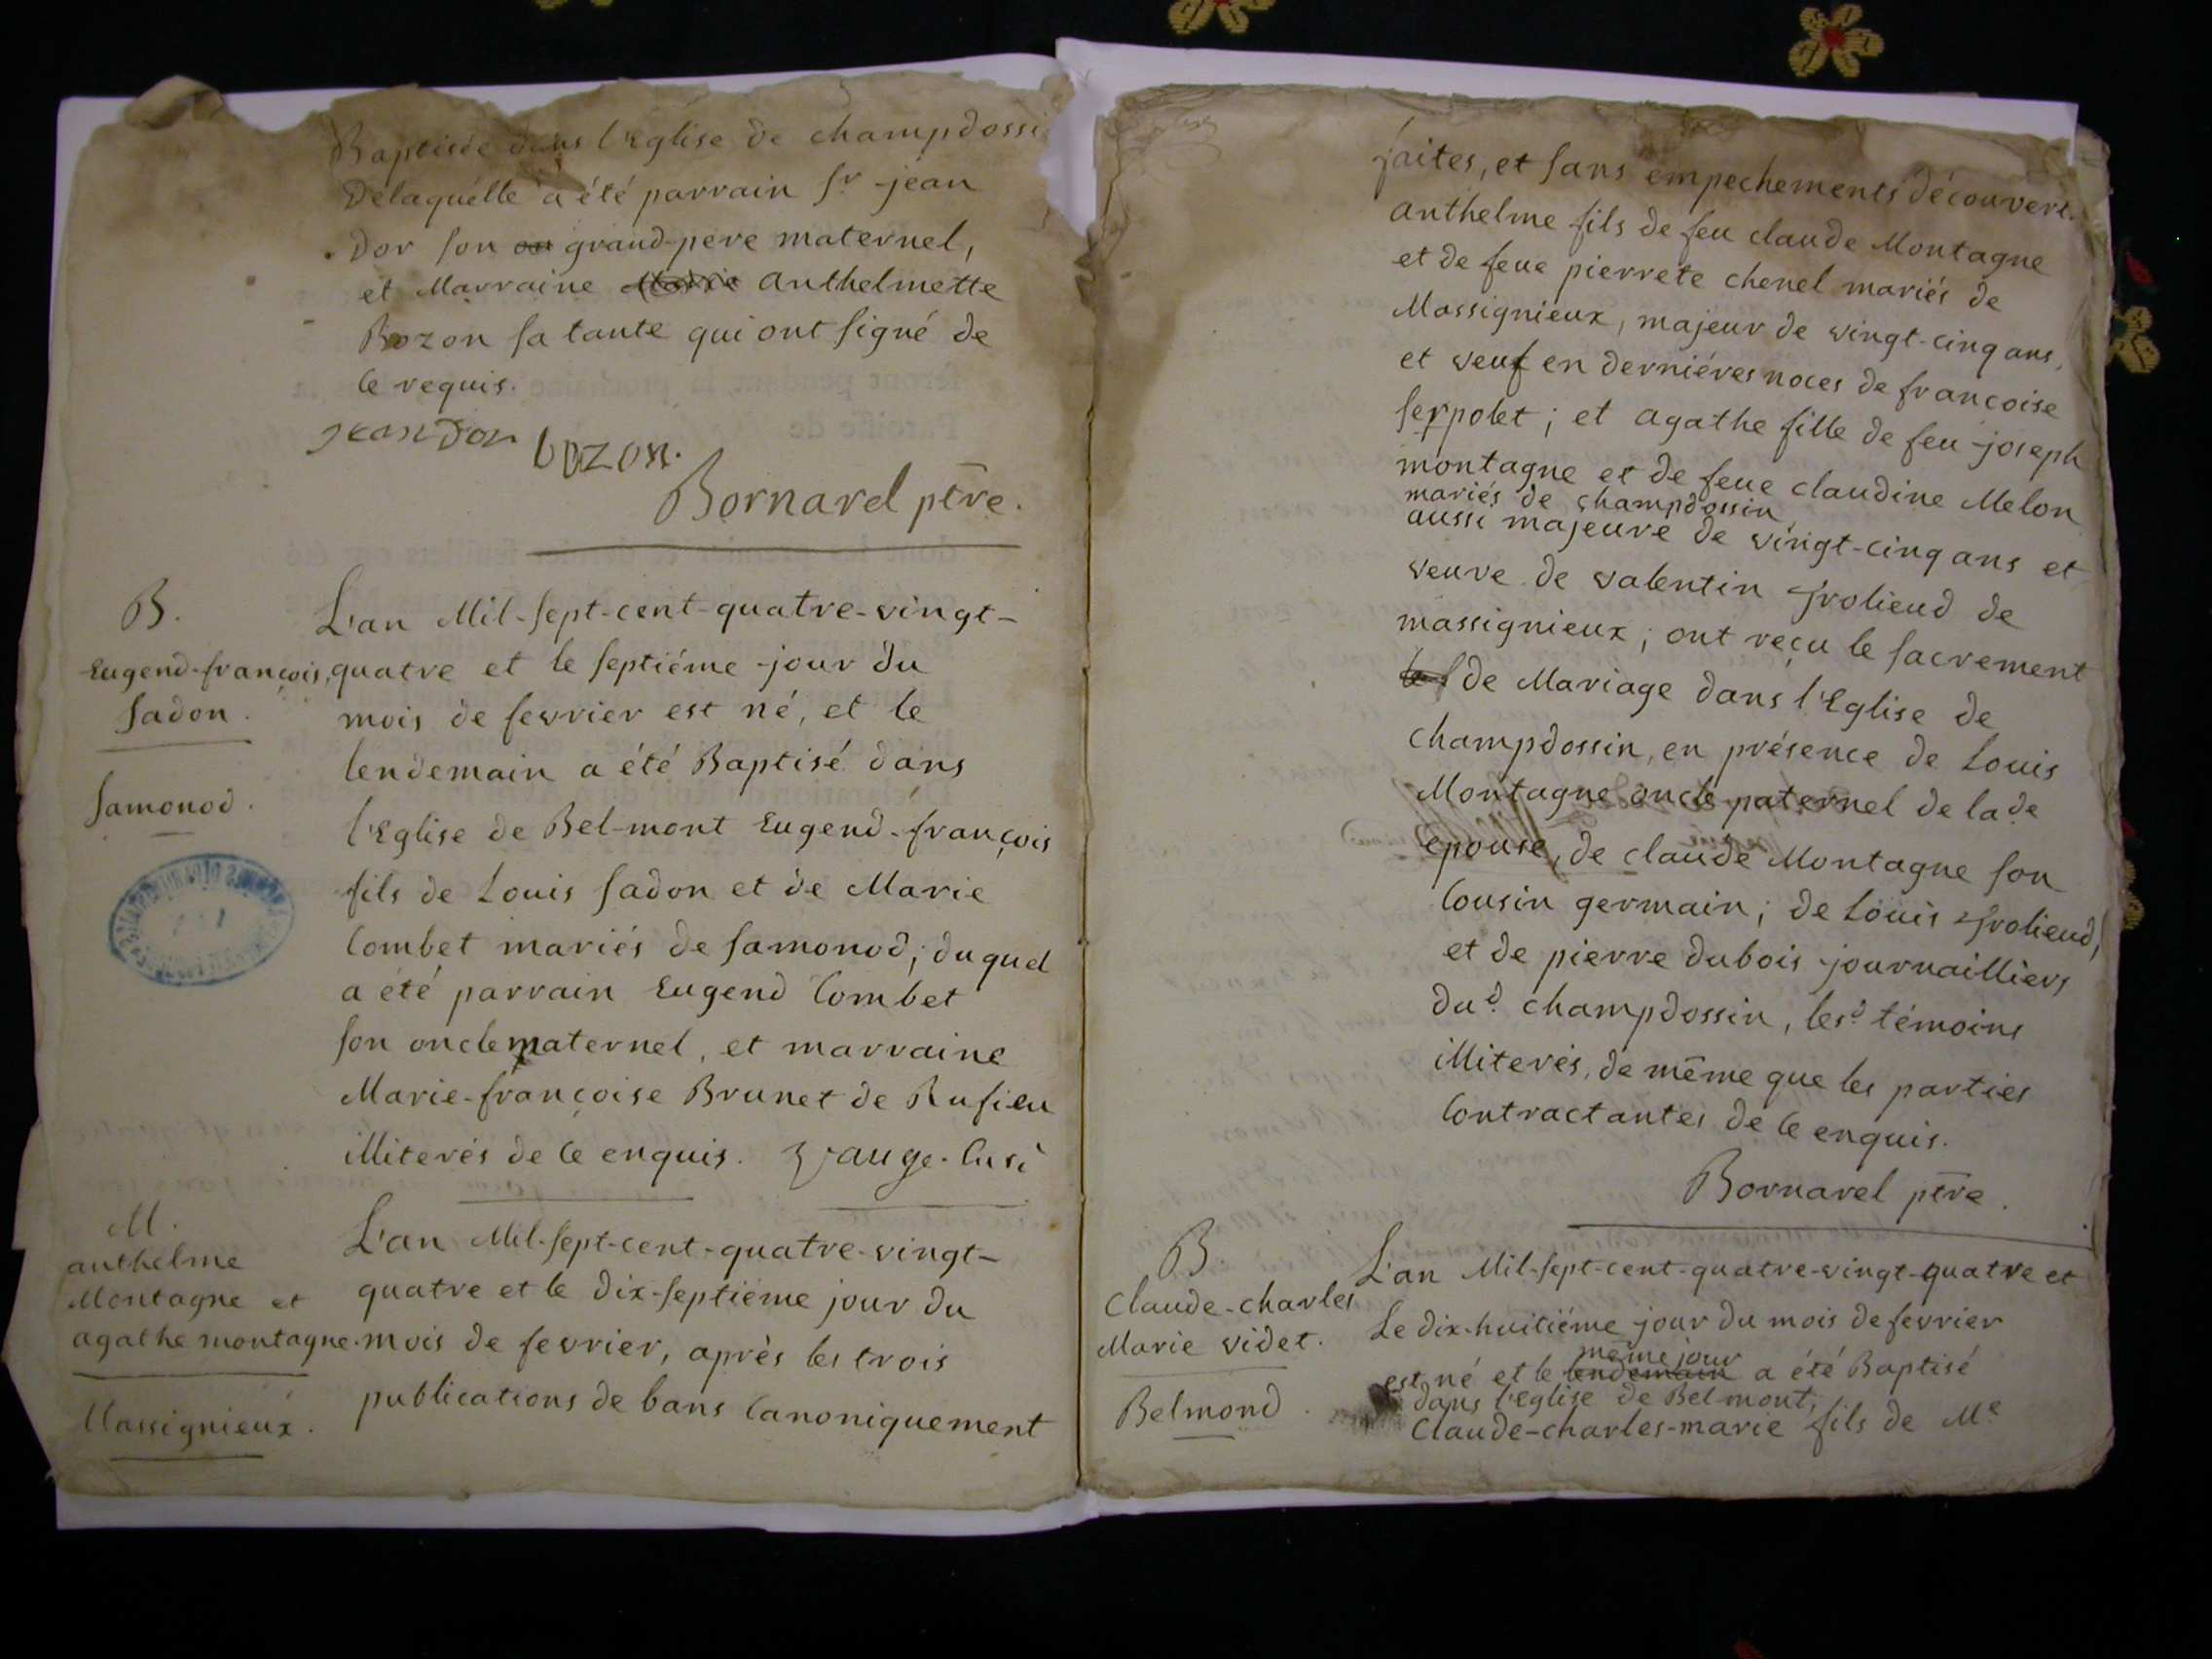 Baptisée dans l'Eglise de champdossi
Delaquélle a été parrain Sr jean
Dor son grand-pere maternel,
et Marraine Marie anthelmette
Bozon sa tante qui ont signé de
ce requis.
jean Dor bozon.
Bornarel ptre.
B.
Eugend-françois,
Sadon.
Samonod.
L'an Mil-sept-cent-quatre-vingt-
quatre et le septiéme jour du
mois de fevrier est né, et le
lendemain a été Baptisé dans
l'Eglise de Bel-mont Eugend-françois
fils de Louis Sadon et de Marie
Combet mariés de Samonod; duquel
a été parrain Eugend Combet
son oncle maternel, et marraine
Marie-françoise Brunet de Rufieu
illiterés de ce enquis.
M.
anthelme
Montagne et
agathe montagne.
Massignieux.
L'an Mil-sept-cent-quatre-vingt-
quatre et le dix-septiéme jour du
mois de fevrier, après les trois
publications de bans Canoniquement
faites, et sans empechements découvert.
anthelme fils de feu claude Montagne
et de feue pierrete chenel mariés de
Massignieux, majeur de vingt-cinq ans,
et veuf en derniéres noces de françoise
Serpolet; et agathe fille de feu joseph
montagne et de feue claudine Melon
mariés de champdossin
aussi majeure de vingt-cinq ans et
veuve de valentin froliend de
massignieux; ont reçu le sacrement
de Mariage dans l'Eglise de
champdossin, en présence de Louis
Montagne oncle paternel de lade
epouse, de claude Montagne son
Cousin germain; de Louis froliend,
et de pierre dubois journailliers
dud. champdossin, lesd. témoins
illiterés, de même que les parties
Contractantes de ce enquis.
Bornarel ptre.
B.
Claude-charles
Marie videt.
Belmond.
L'an Mil-sept-cent-quatre-vingt-quatre et
Le dix-huitiéme jour du mois de fevrier
même jour
est né et le lendemain a été Baptisé
dans l'Eglise de Bel-mont,
Claude-charles-marie fils de Me